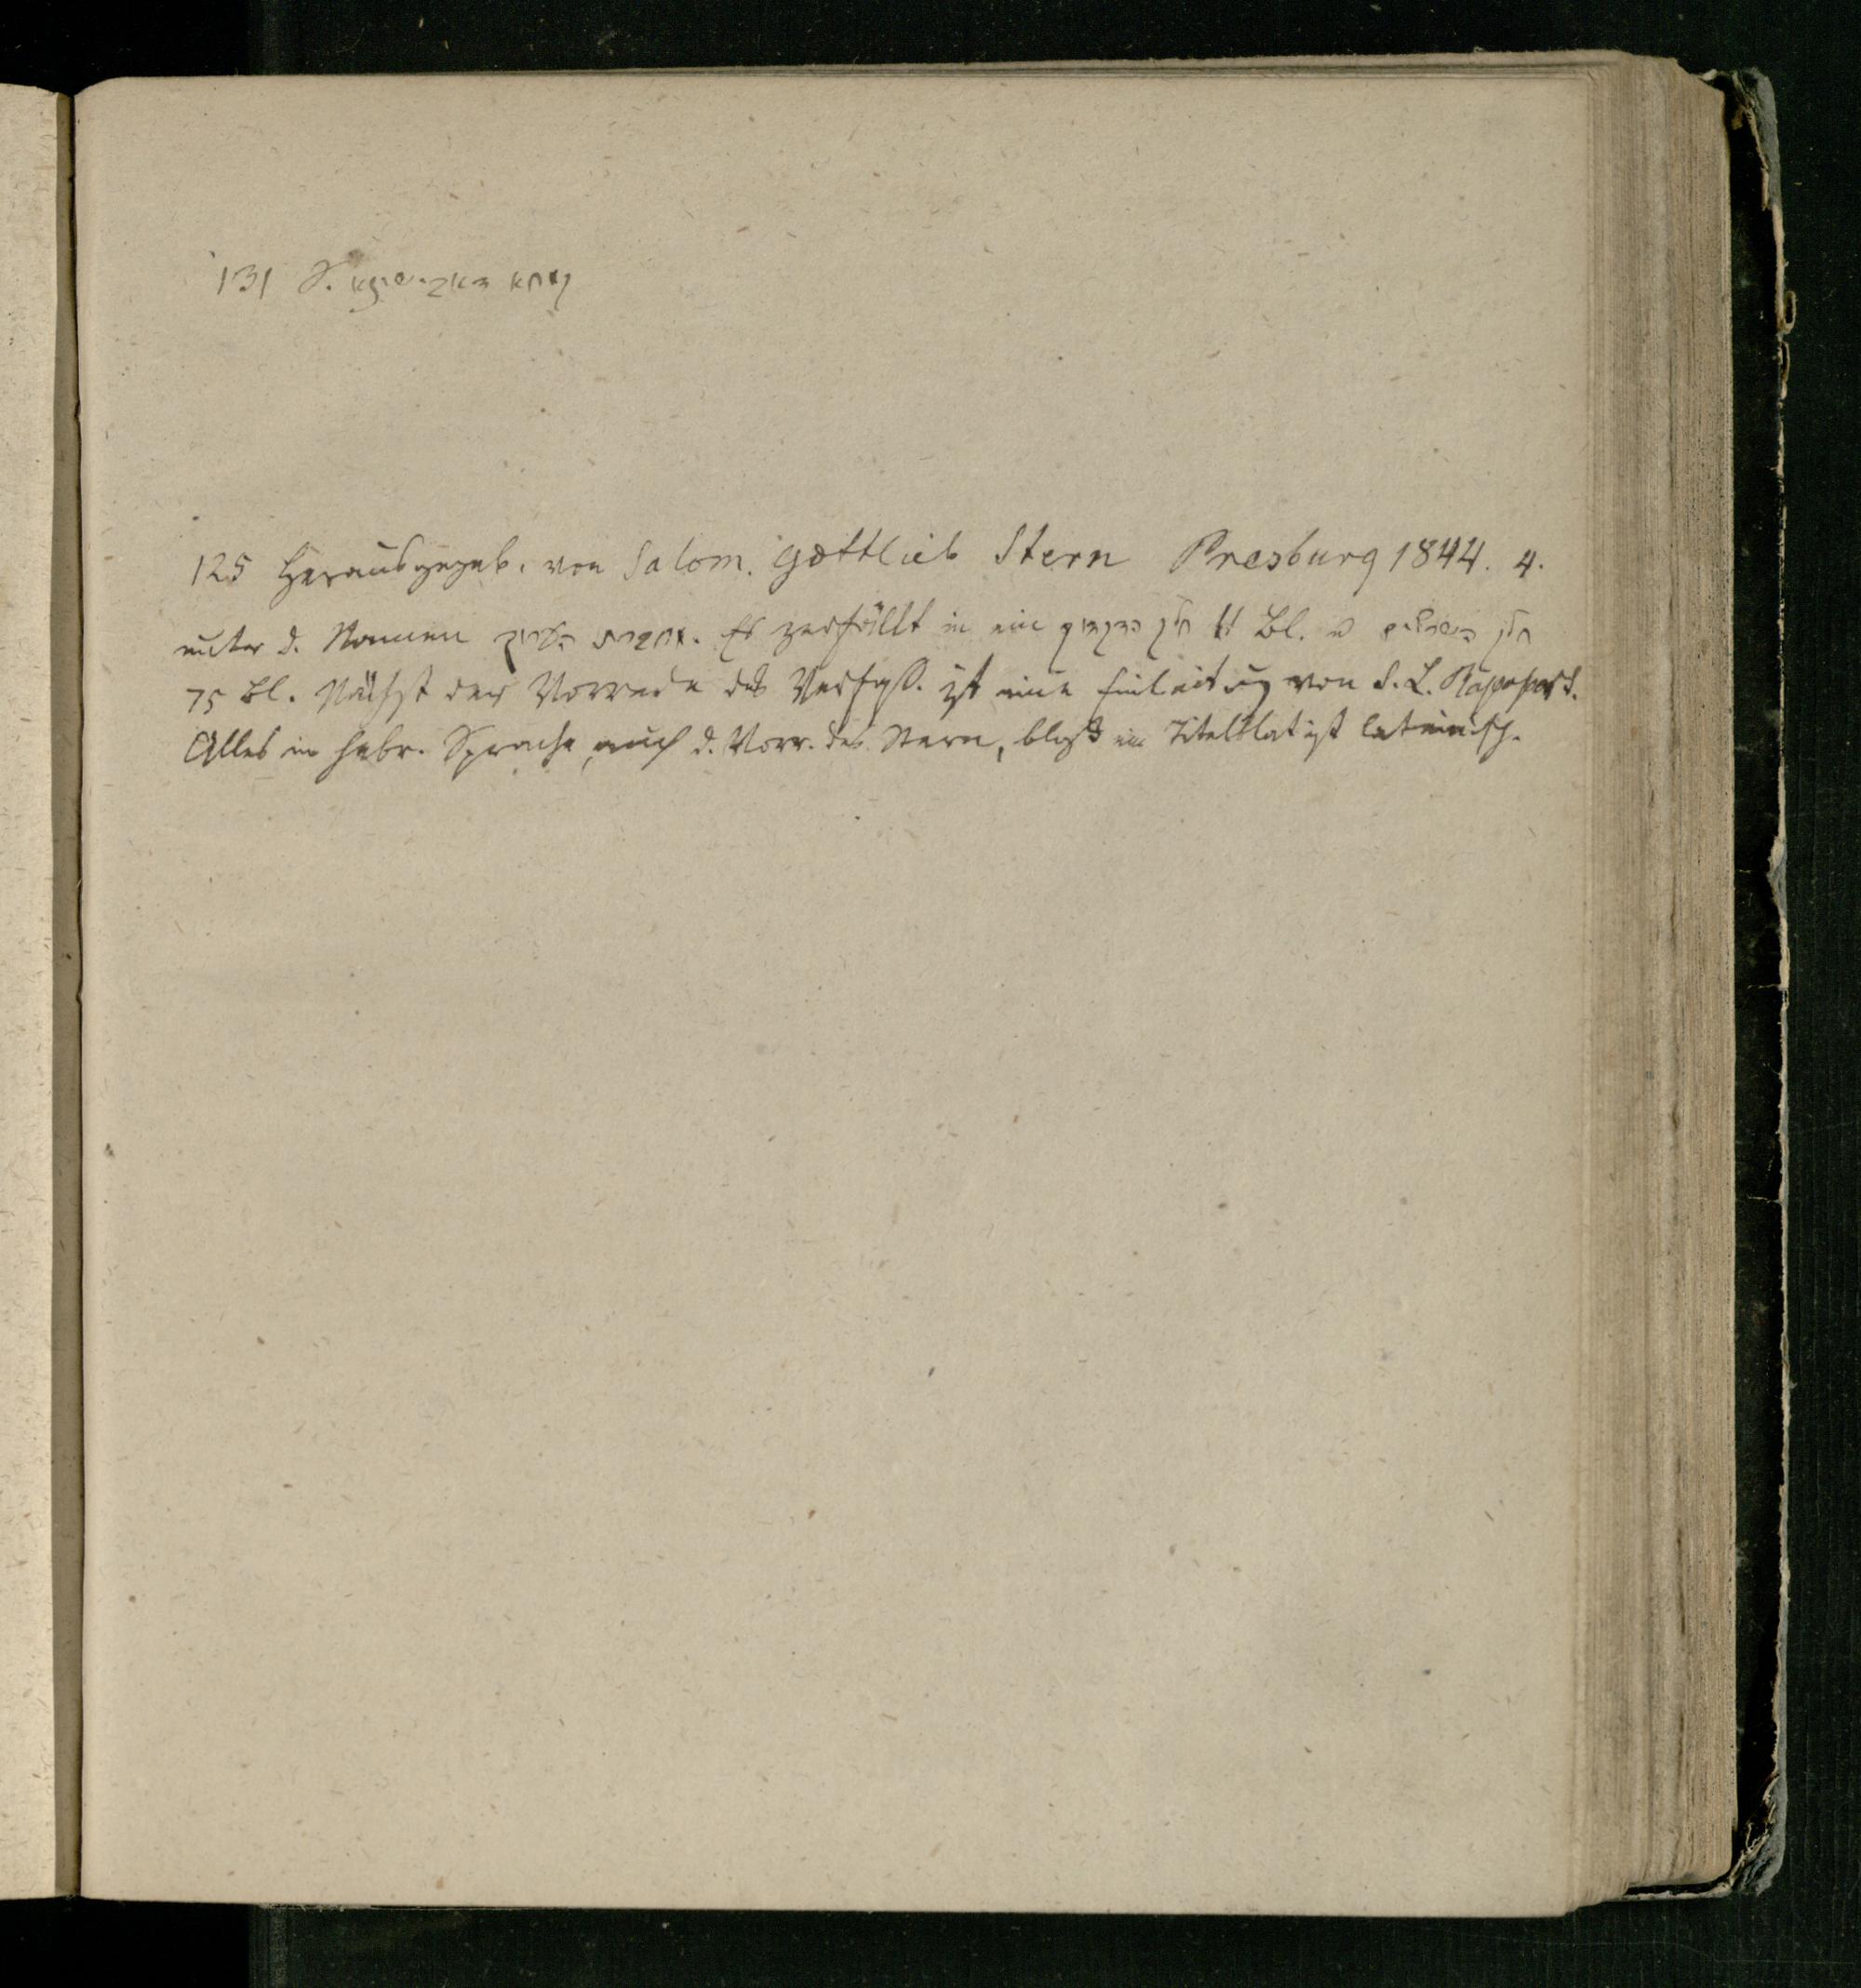 131 S.
125 Herausgegeb. von Salom. Gottlieb Stern Presburg 1844. 4.
unter d. Namen מחברת הערוך. Es zerfällt in ein חלק הדקדוק 11 Bl. u חלק השרשים
75 Bl. Nächst der Vorrede des Verfaß. ist eine Einleitung von S. L. Rapoport.
Alles in hebr. Sprache, auch d. Vorr. des Stern, bloß ein Titelblat ist lateinisch.